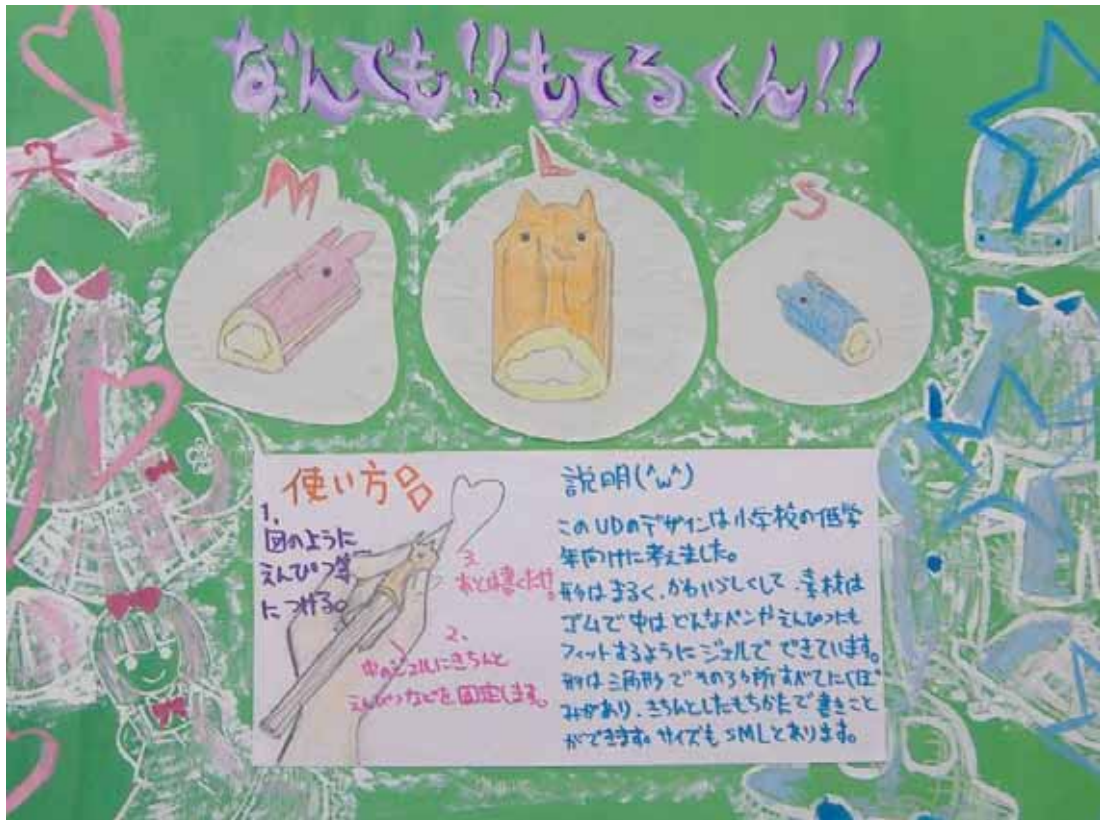 なんでも!!もてるくん!!
M
L
S
使い方
1.
図のように
えんぴつ等
につける。
2.
中のジェルにきちんと
えんぴつなどを固定します。
3.
あとは書くだけ!
説明(^w^)
このUDのデザインは小学校の低学
年向けに考えました。
形はまるく、かわいらしくして、素材は
ゴムで中はどんなペンやえんぴつも
フィットするようにジェルでできています。
形は三角形でその3ヶ所すべてにくぼ
みがあり、きちんとしたもちかたで書きこと
ができます。サイズもSMLとあります。